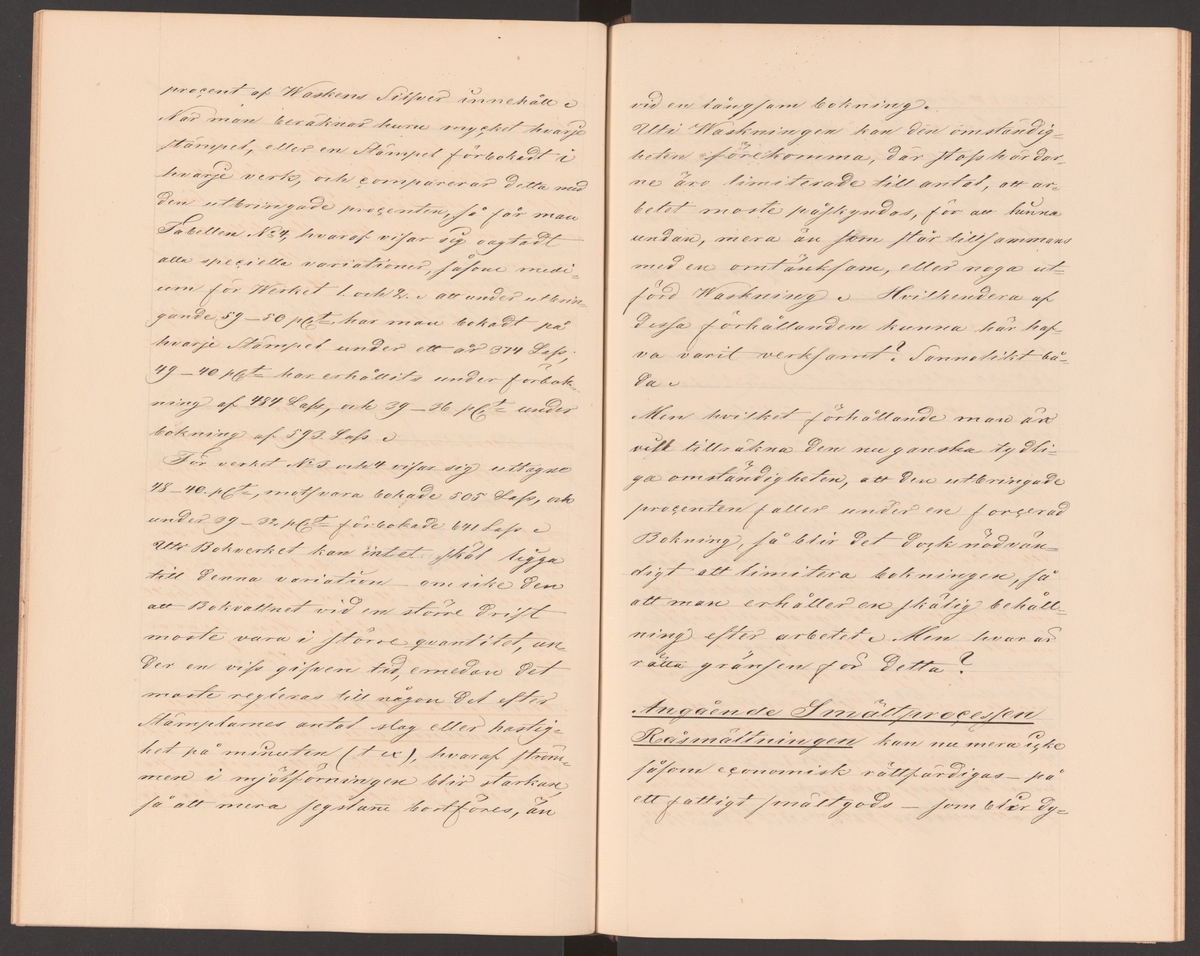 proçent af Waskens Silfver innehåll.
När man beräknar huru mycket hvarje
stämpel, eller en Stämpel förbokadt i
hvarje verk, och çomparerar detta med
den utbringade proçenten, så får man
Tabellen No 4, hvaraf visar sig oagtadt
alla speçiella variationer, såsom medi-
um för Werket 1. och 2. att under utbrin-
gande 59–50 pCt har man bokadt på
hvarje Stämpel under ett år 374 Lass;
49–40 pCt har erhållits under förbok-
ning af 484 Lass, och 39–36 pCt under
bokning af 593 Lass.
För verket No 3 och 4 visar sig uttagne
48–40. pCt, motsvara bokade 505 Lass, och
under 39–32 pCt förbokade 641 Lass.
Uti Bokverket kan intet skäl ligga
till denna variation – om icke den
att Bokvattnet vid en större drift
moste vara i större qvantitet, un-
der en viss gifven tid, emedan det
moste regleras till någon del efter
Stämplarnes antal slag eller hastig-
het på minuten (t ex), hvaraf ström-
men i mjölförningen blir starkare,
så att mera segstane bortföres, än
vid en långsam bokning.
Uti Waskningen kan den omständig-
heten förekomma, där stosshärdar-
ne äro limiterade till antal, att ar-
betet moste påskyndas, för att hinna
undan, mera än som står tillsammans
med en omtänksam, eller noga ut-
förd Waskning. Hvilkendera af
dessa förhållanden kunna här haf-
va varit verksamt? Sannolikt bå-
da.
Men hvilket förhållande man än
vill tillräkna den nu ganska tydli-
ga omständigheten, att den utbringade
proçenten faller under en forçerad
Bokning, så blir det dock nödvän-
digt att limitera bokningen, så
att man erhåller en skälig behåll-
ning efter arbetet. Men hvar är
rätta gränsen för detta?
Angående Smältproçessen
Råsmältningen kan nu mera içke
såsom eçonomisk rättfärdigas – på
ett fattigt smältgods – som blir dy-